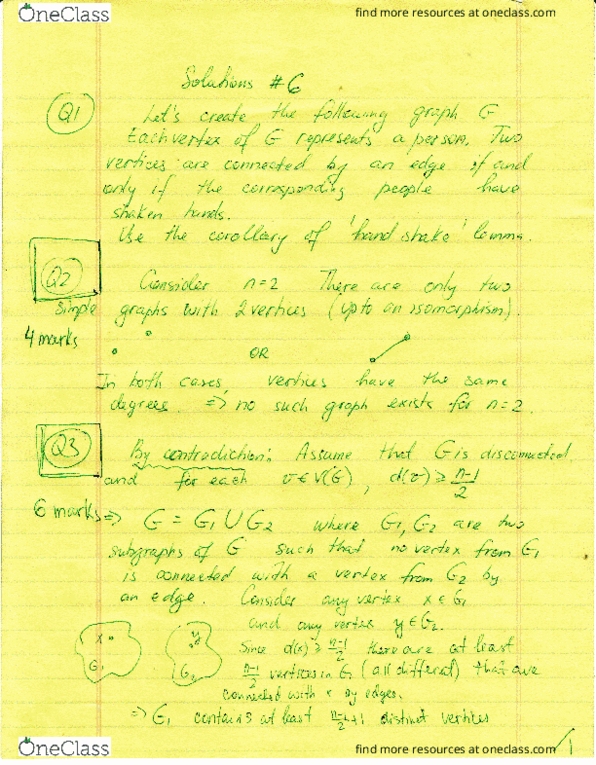 OneClass
find more resources at oneclass.com
Solutions #6
Q1
Let's create the following graph G
Each vertex of G represents a person. Two
vertices are connected by an edge if and
only if the corresponding people have
shaken hands.
Use the corollary of 'hand shake' lemma.
Q2
Consider n=2 There are only two
simple graphs with 2 vertices (up to an isomorphism).
4 marks
OR
In both cases, vertices have the same
degrees. ⇒ no such graph exists for n=2.
Q3
By contradiction: Assume that G is disconnected,
and for each v∈V(G), d(v) ≥ n-1/2
6 marks
⇒ G = G1 ∪ G2 where G1, G2 are two
subgraphs of G such that no vertex from G1
is connected with a vertex from G2 by
an edge. Consider any vertex x∈G1
and any vertex y∈G2.
x
G1
y
G2
Since d(x) ≥ n-1/2 there are at least
n-1/2 vertices in G1 (all different) that are
connected with x by edges.
⇒ G1 contains at least n-1/2+1 distinct vertices
1
OneClass
find more resources at oneclass.com